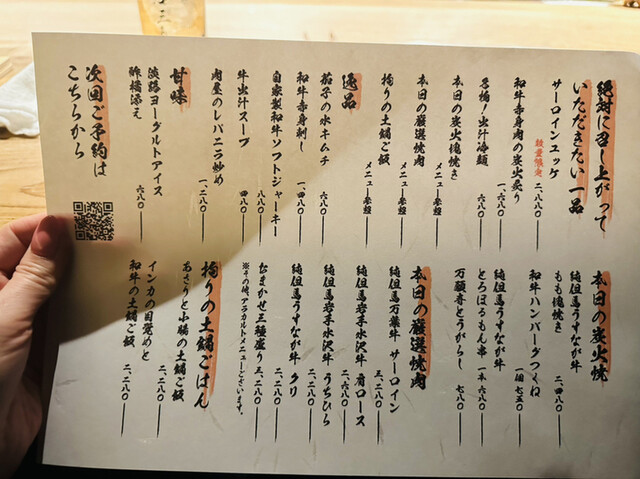 絶対に召し上がって
いただきたい一品
サーロインユッケ
数量限定
二、八八〇
和牛赤身肉の炭火炙り
一、六八〇
出汁冷麺
六八〇
本日の炭火塊焼き
メニュー参照
本日の厳選焼肉
メニュー参照
拘りの土鍋ご飯
メニュー参照
逸品
茄子の水キムチ
六八〇
和牛赤身刺し
一、四八〇
自家製和牛ソフトジャーキー
八八〇
牛出汁スープ
四八〇
肉屋のレバニラ炒め
一、二八〇
甘味
淡路ヨーグルトアイス
酢橘添え
六八〇
次回ご予約は
こちらから
本日の炭火焼
純但馬うすなが牛
もも塊焼き
二、四八〇
和牛ハンバーグつくね
一個 七五〇
純但馬うすなが牛
とろほるもん串
一本 七八〇
万願寺とうがらし
七八〇
本日の厳選焼肉
純但馬万葉牛 サーロイン
三、二八〇
純但馬岩手水沢牛 肩ロース
二、六八〇
純但馬岩手水沢牛 うちひら
二、二八〇
純但馬うすなが牛 クリ
二、二八〇
おまかせ三種盛り
三、二八〇
※その他、アラカルトメニューございます。
拘りの土鍋ごはん
あさりと小鯛の土鍋ご飯
二、二八〇
インカの目覚めと
和牛の土鍋ご飯
二、二八〇